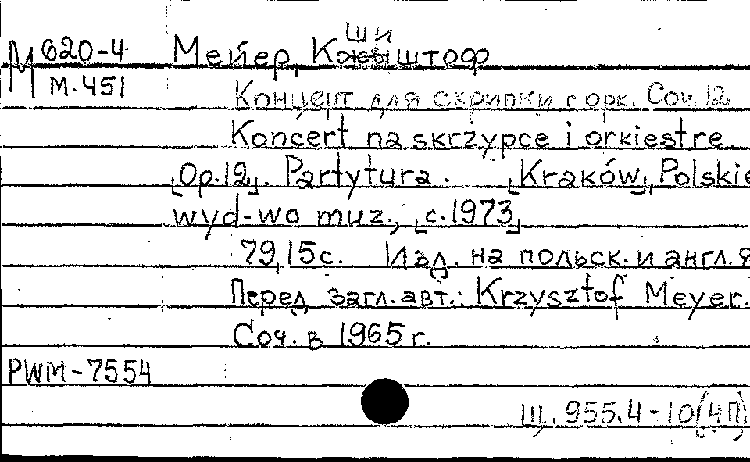 М 620-4 Мейер, Кшиштоф
М.451
Концерт для скрипки с орк. Соч. 12
Koncert na skrzypce i orkiestre
[Op.12]. Partytura. [Kraków], Polskie
wyd-wo muz., [c.1973]
79,15с. Изд. на польск. и англ. я
Перед загл. авт.: Krzysztof Meyer.
Соч. в 1965 г.
PWM-7554
955.4-10(4П)